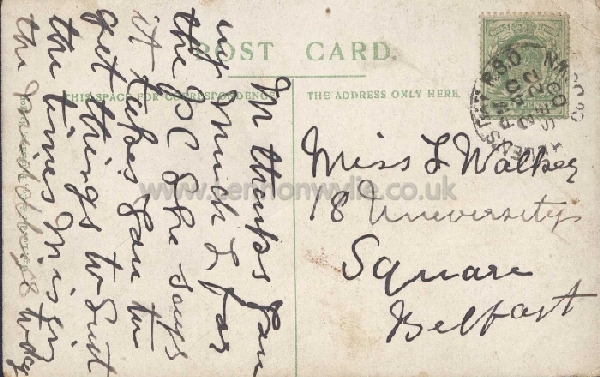 POST CARD.
THIS SPACE FOR CORRESPONDENCE
THE ADDRESS ONLY HERE.
M thanks you
very much L for
the PC She says
it takes you to
get things to suit
the times M is in
the to day
Miss L Walker
18 University
Square
Belfast
www.lennonwylie.co.uk